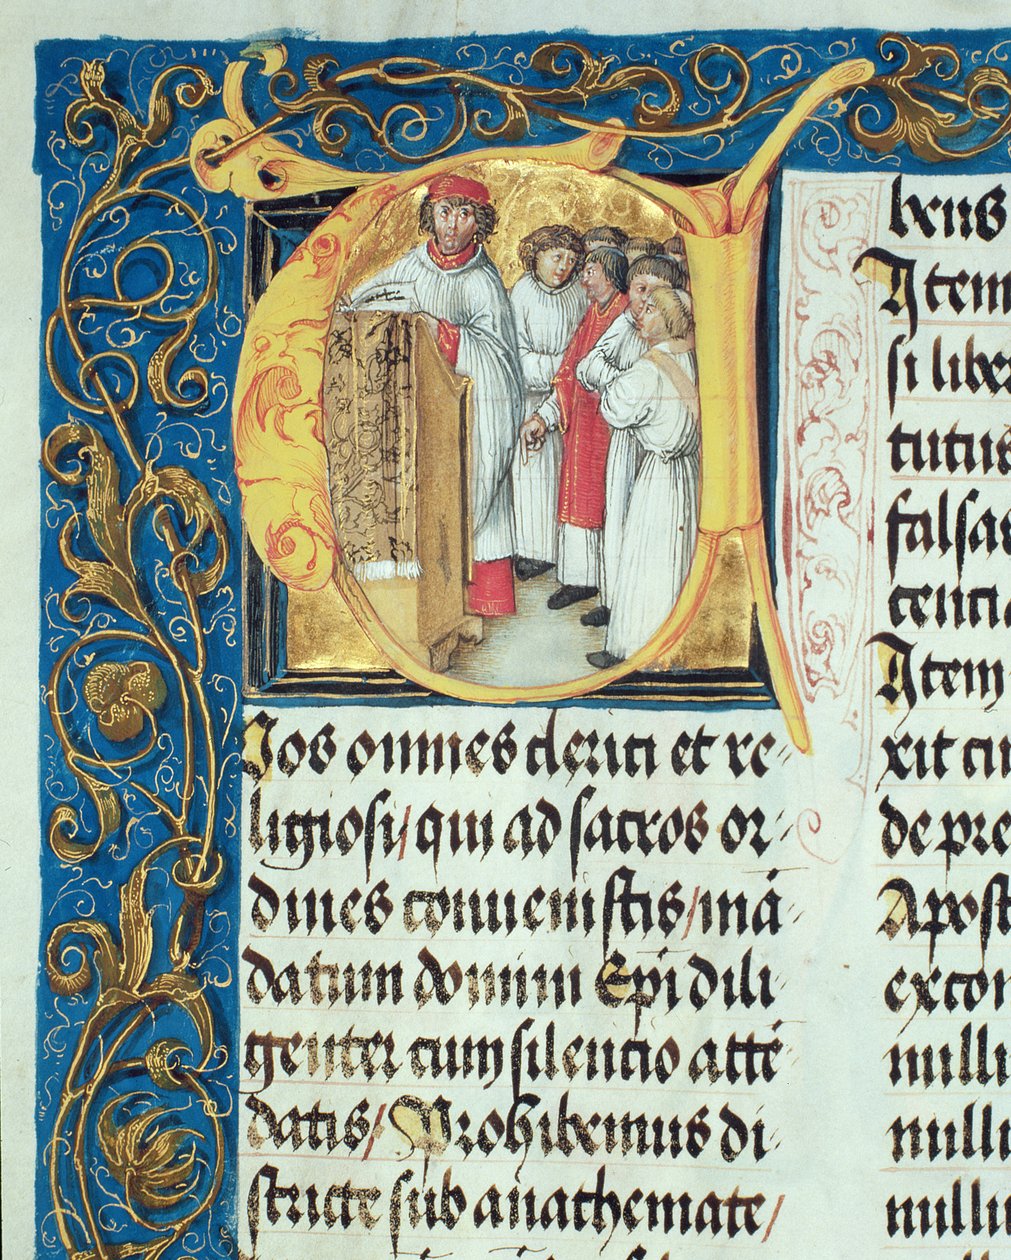 Vos omnes clerici et re-
ligiosi/ qui ad sacros or-
dines conuenistis/ mā-
datum domini Ep̄i dili-
genter cum silencio attē-
datis/ Prohibemus di-
stricte sub anathemate/
Item
si liber
tutus
falsa
Item
xit cu
de pre
Apost
excom
nulli
nulli
nulli